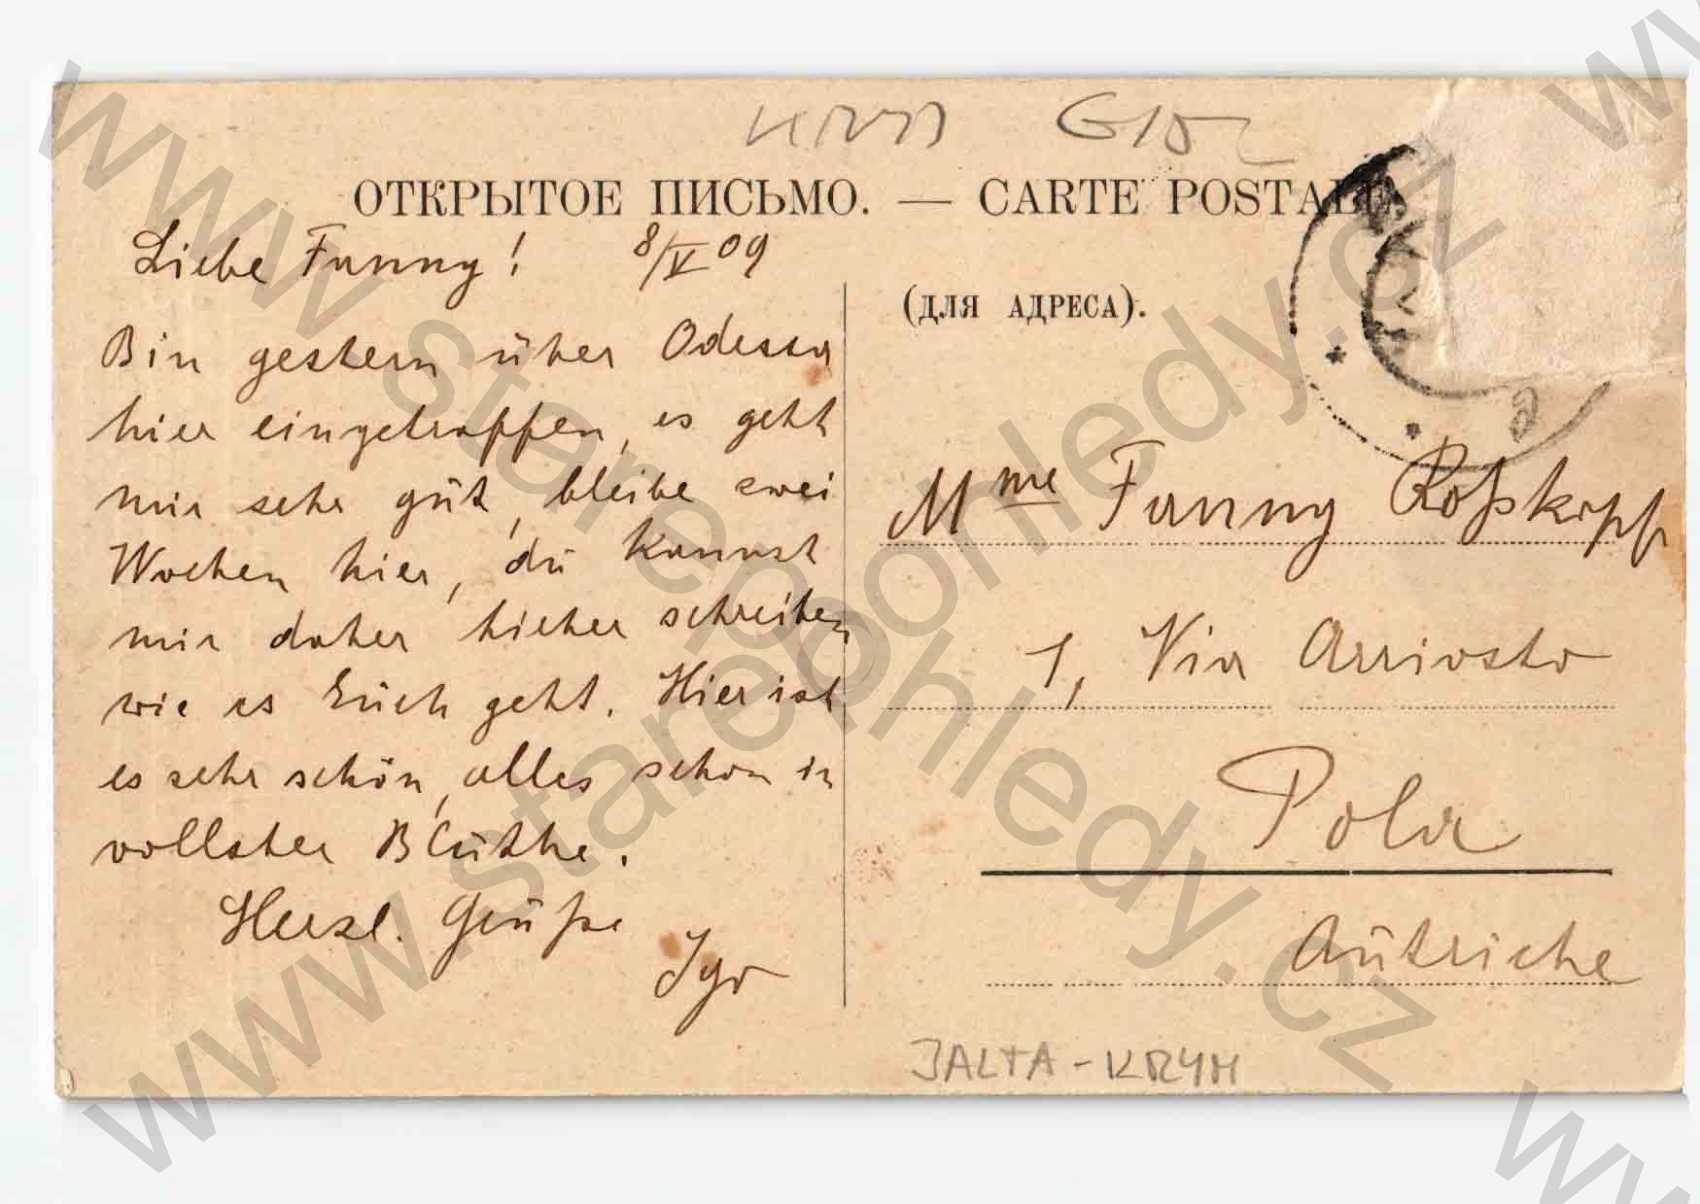 KRYM
ОТКРЫТОЕ ПИСЬМО. — CARTE POSTALE
(ДЛЯ АДРЕСА).
Liebe Fanny! 8/V 09
Bin gestern über Odessa
hier eingetroffen, es geht
mir sehr gut, bleibe zwei
Wochen hier, du kannst
mir daher hieher schreiben
wie es Euch geht. Hier ist
es sehr schön, alles schon in
vollster Blüthe.
Herzl. Grüße
Mme Fanny Roßkopf
1, Via Arriosto
Pola
Autriche
JALTA - KRYM
www.starepohledy.cz
www.starepohledy.cz